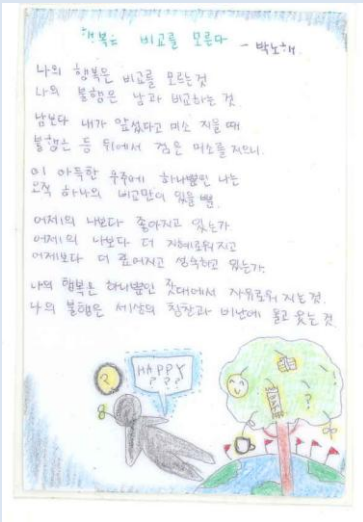 행복은 비교를 모른다 - 박노해
나의 행복은 비교를 모르는 것
나의 불행은 남과 비교하는 것.
남보다 내가 앞섰다고 미소 지을 때
불행은 등 뒤에서 검은 미소를 지으니.
이 아득한 우주에 하나뿐인 나는
오직 하나의 비교만이 있을 뿐.
어제의 나보다 좋아지고 있는가
어제의 나보다 더 지혜로워지고
어제보다 더 깊어지고 성숙하고 있는가.
나의 행복은 하나뿐인 잣대에서 자유로워 지는 것.
나의 불행은 세상의 칭찬과 비난에 울고 웃는 것.
HAPPY
? ? ?
?
?